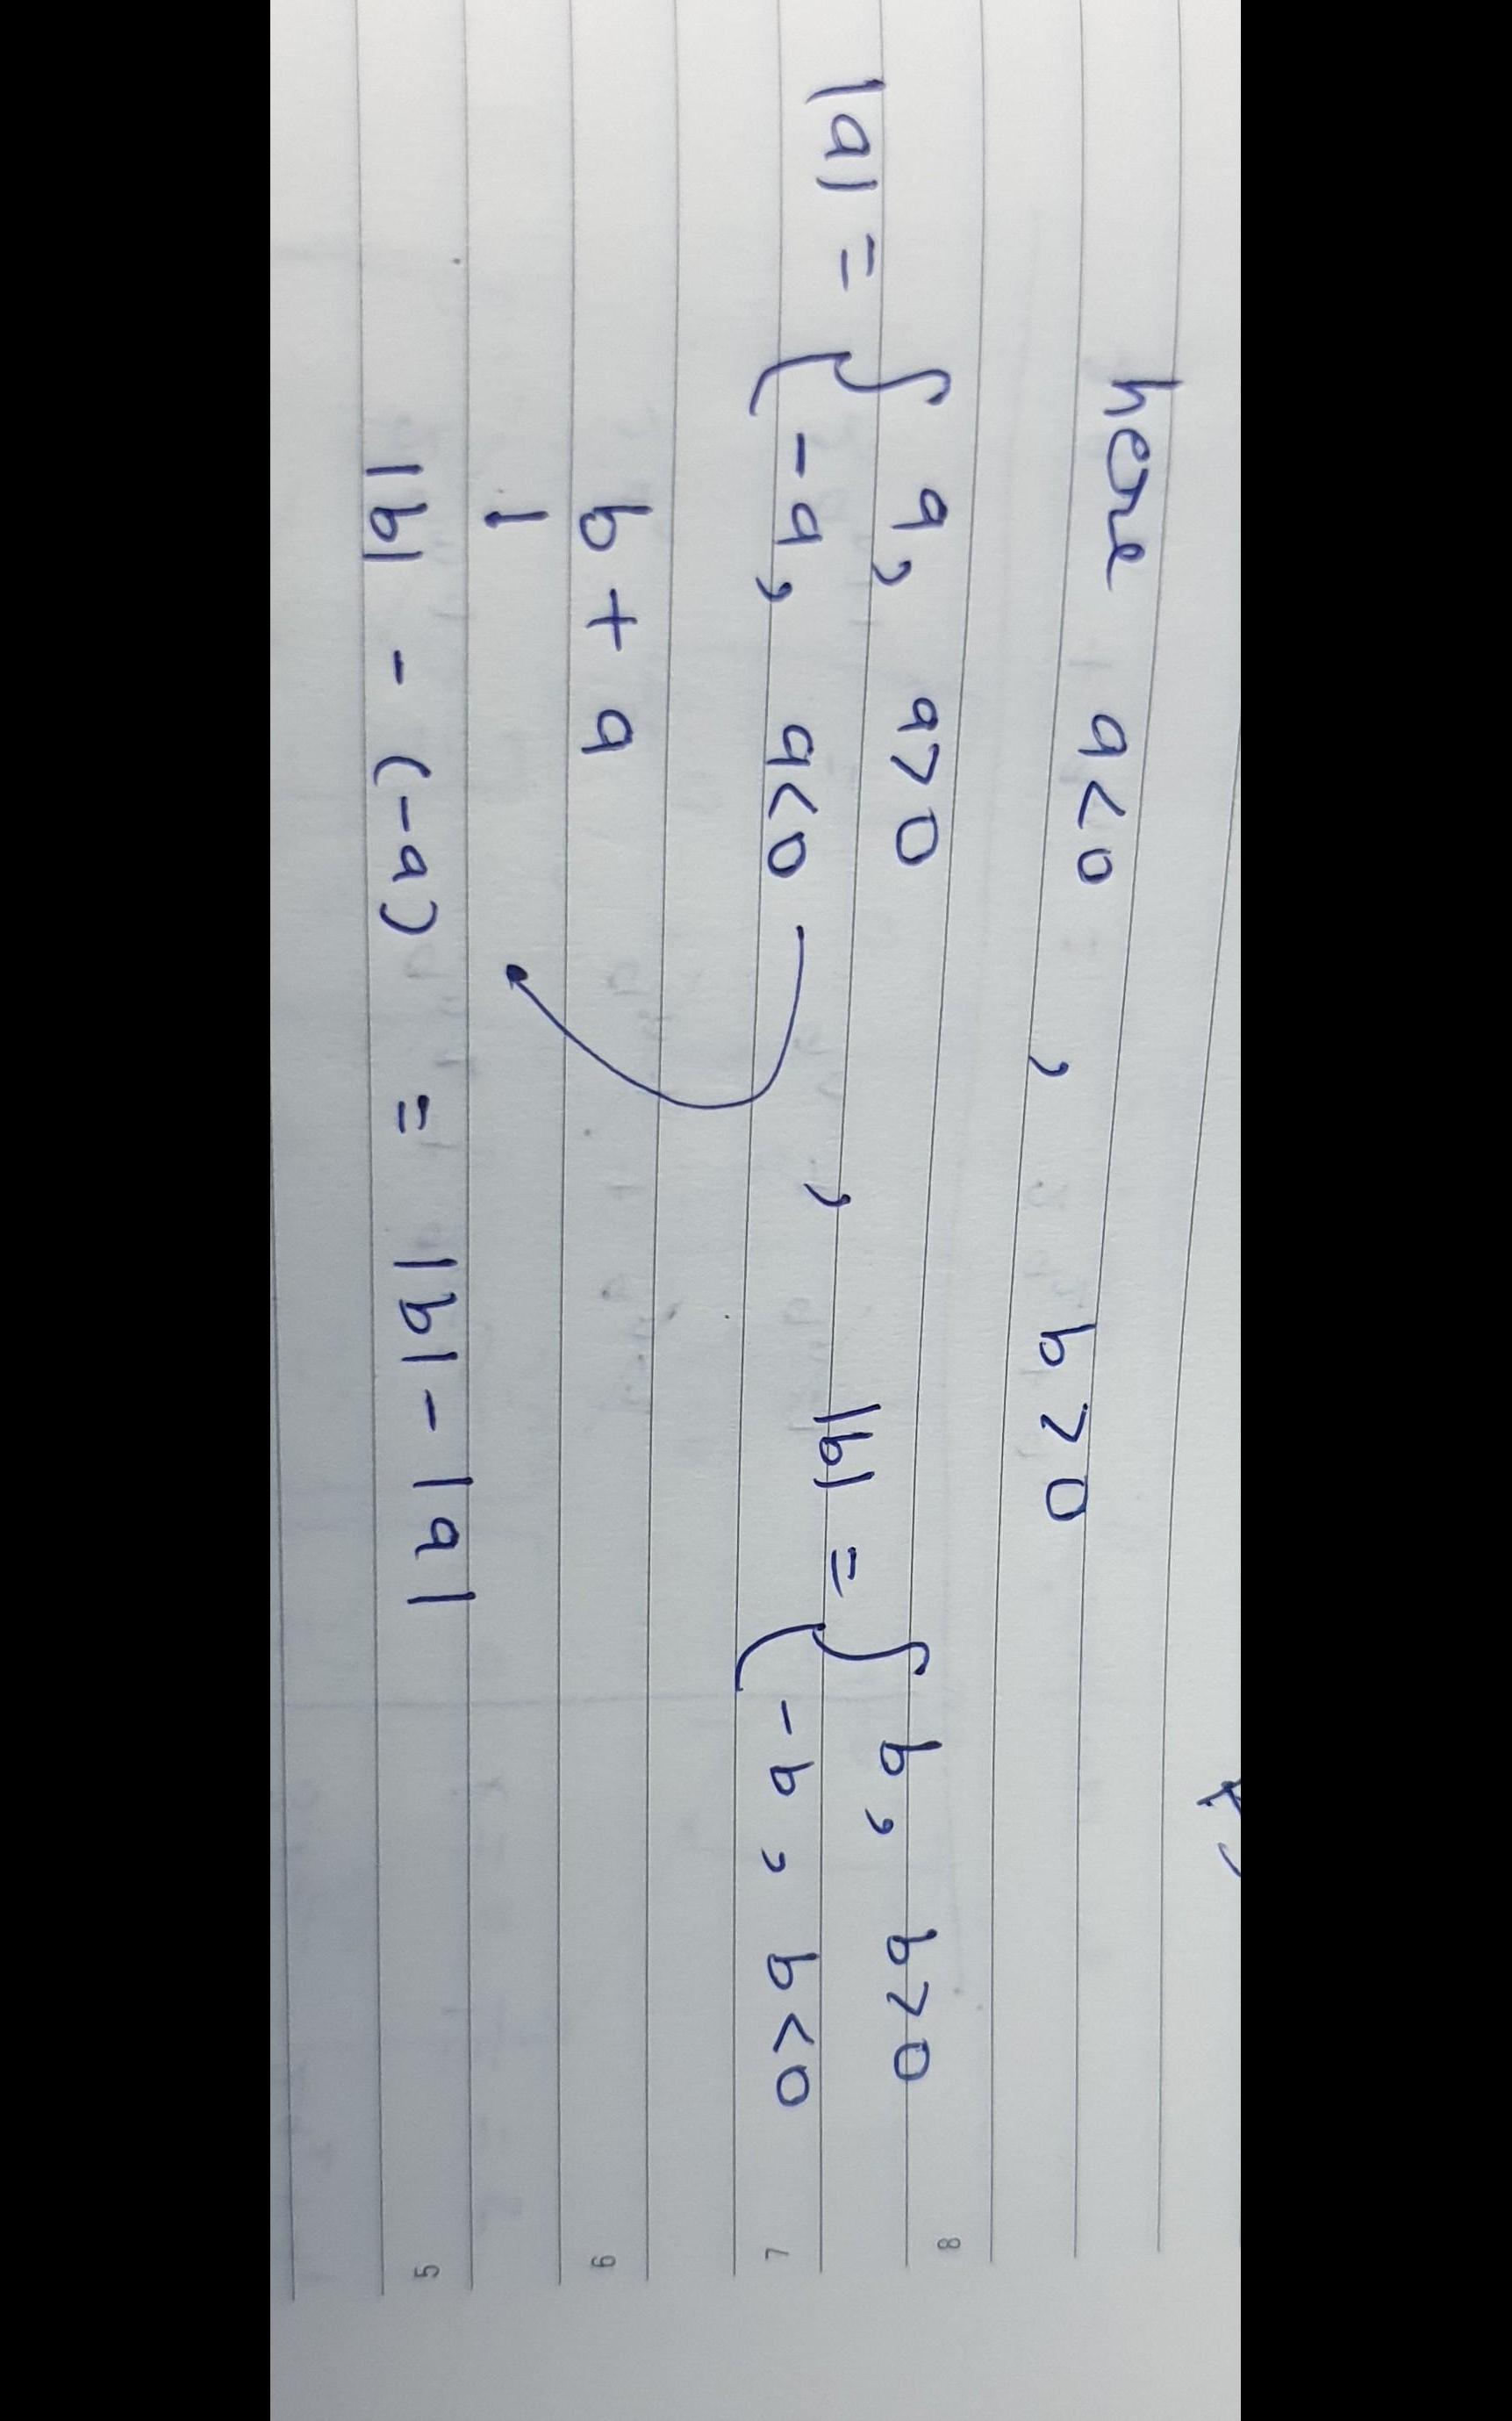 here a<0 , b>0
|a| = { a, a>0
-a, a<0 , |b| = { b, b>0
-b, b<0
b + a
|b| - (-a) = |b| - |a|
8
7
6
5